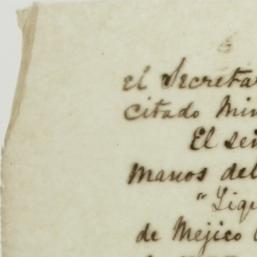 el Secreta
citado Min
El señ
manos del
"Liqu
de Mejico